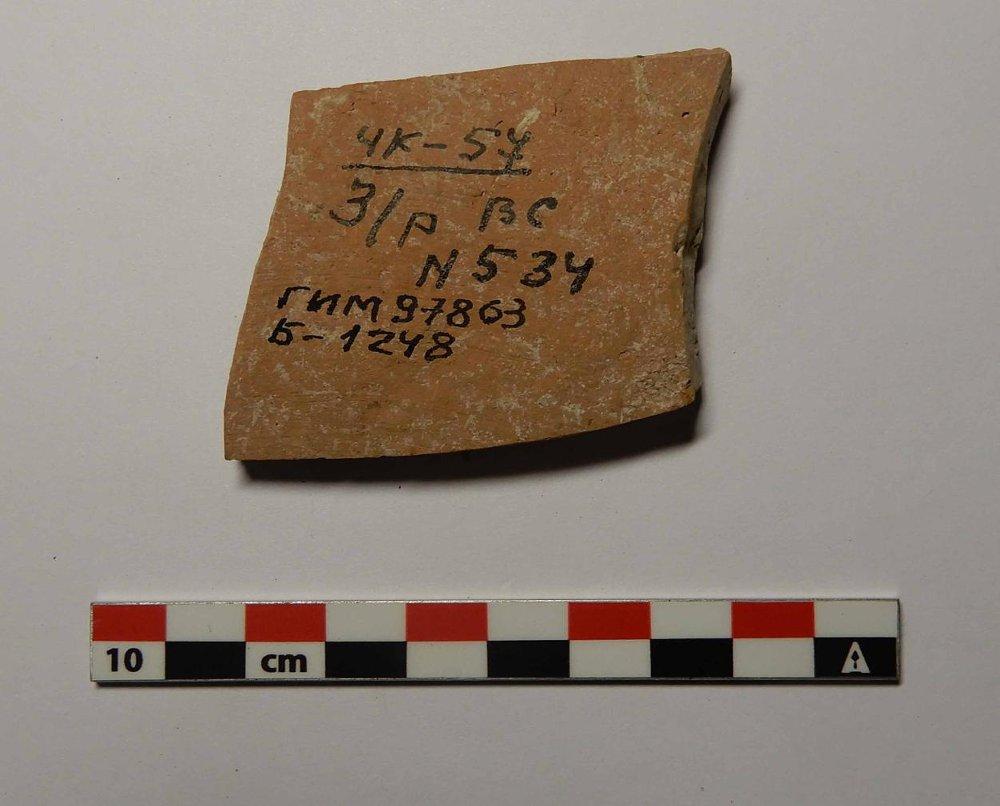 ЧК-57
З/р ВС
N 534
ГИМ 97863
Б-1248
10 cm